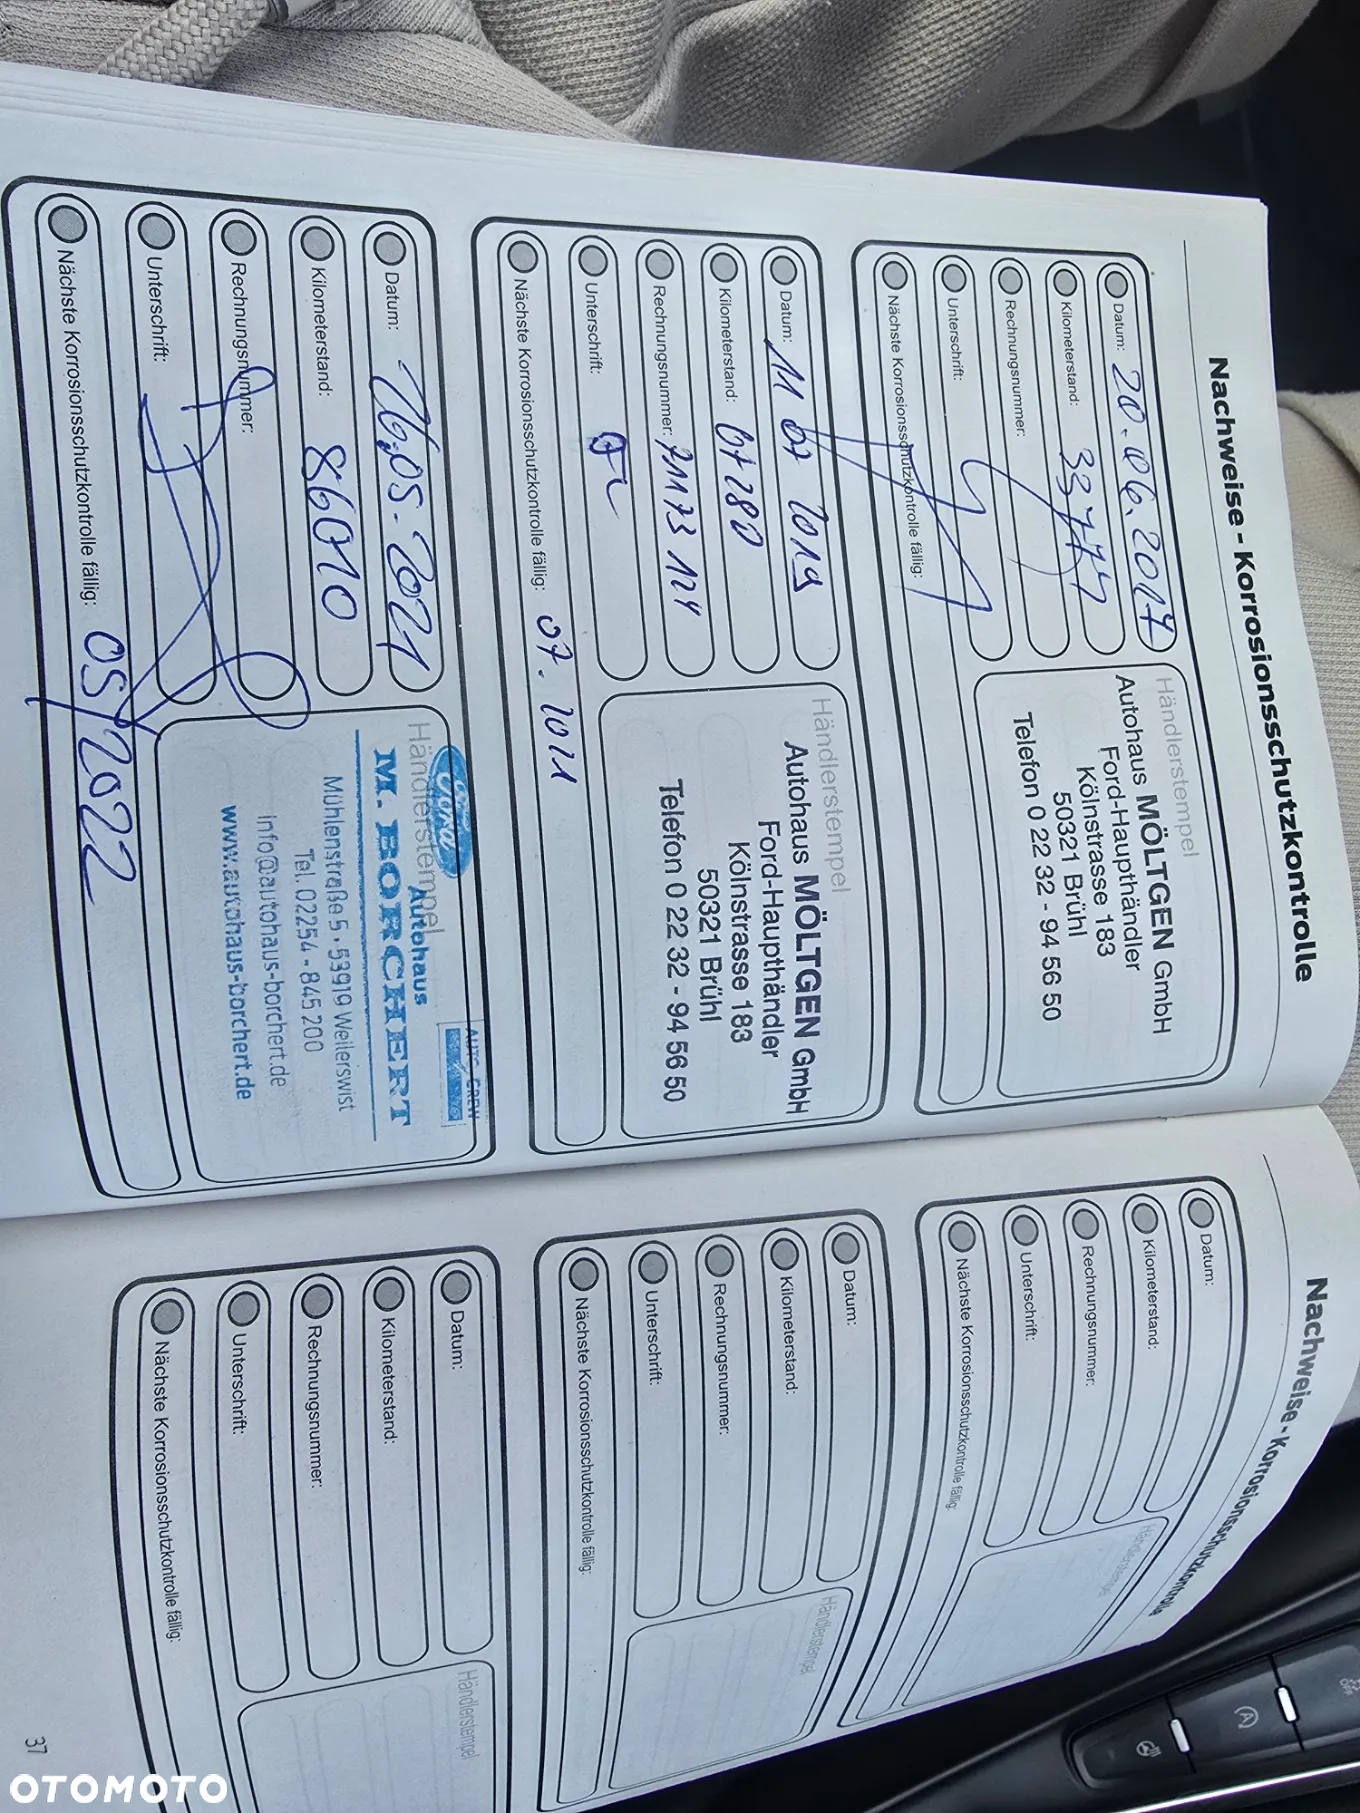 Nachweise - Korrosionsschutzkontrolle
Datum: 20.06.2017
Kilometerstand: 33777
Rechnungsnummer:
Unterschrift:
Nächste Korrosionsschutzkontrolle fällig:
Händlerstempel
Autohaus MÖLTGEN GmbH
Ford-Haupthändler
Kölnstrasse 183
50321 Brühl
Telefon 0 22 32 - 94 56 50
Datum: 11 07 2019
Kilometerstand: 67280
Rechnungsnummer: 71173 124
Unterschrift:
Nächste Korrosionsschutzkontrolle fällig: 07.2021
Händlerstempel
Autohaus MÖLTGEN GmbH
Ford-Haupthändler
Kölnstrasse 183
50321 Brühl
Telefon 0 22 32 - 94 56 50
Datum: 16.05.2021
Kilometerstand: 86010
Rechnungsnummer:
Unterschrift:
Nächste Korrosionsschutzkontrolle fällig: 05/2022
Händlerstempel
Ford
AUTO CREW
Autohaus
M. BORCHERT
Mühlenstraße 5 · 53919 Weilerswist
Tel. 02254 - 845 200
info@autohaus-borchert.de
www.autohaus-borchert.de
Nachweise - Korrosionsschutzkontrolle
Datum:
Kilometerstand:
Rechnungsnummer:
Unterschrift:
Nächste Korrosionsschutzkontrolle fällig:
Händlerstempel
Datum:
Kilometerstand:
Rechnungsnummer:
Unterschrift:
Nächste Korrosionsschutzkontrolle fällig:
Händlerstempel
Datum:
Kilometerstand:
Rechnungsnummer:
Unterschrift:
Nächste Korrosionsschutzkontrolle fällig:
Händlerstempel
37
OFF
A
OTOMOTO